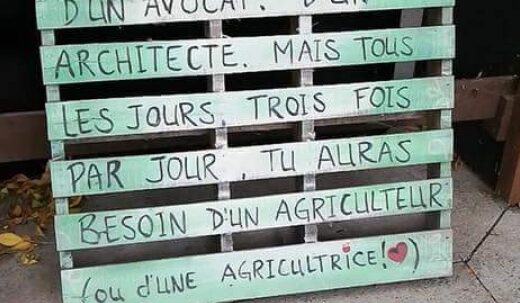 D'UN AVOCAT. D'UN
ARCHITECTE. MAIS TOUS
LES JOURS, TROIS FOIS
PAR JOUR, TU AURAS
BESOIN D'UN AGRICULTEUR
(ou d'UNE AGRICULTRICE!❤)